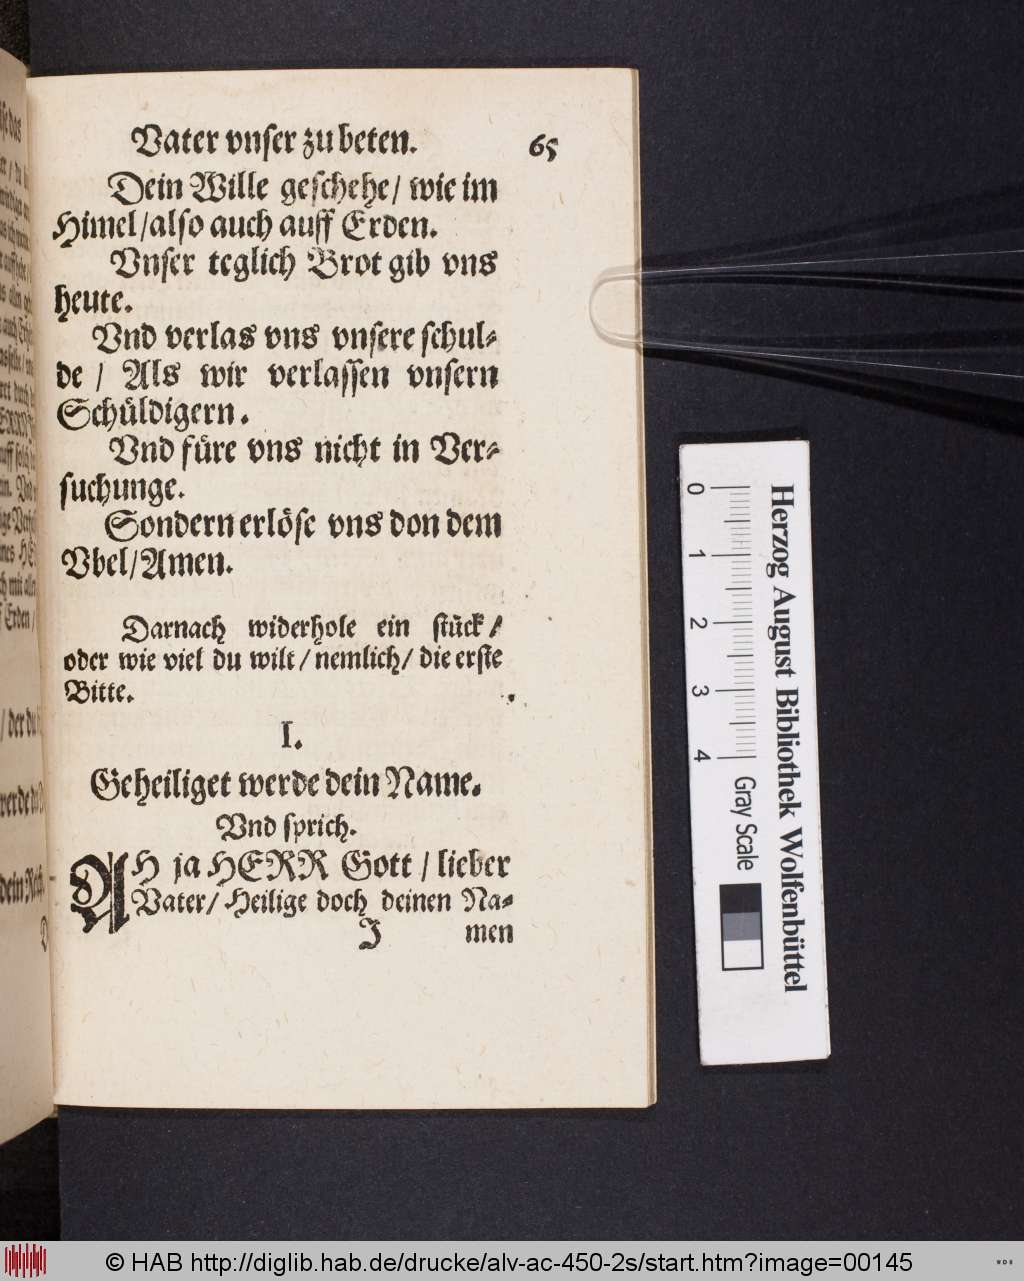 Vater vnser zu beten. 65
Dein Wille geschehe/ wie im
Himel/also auch auff Erden.
Vnser teglich Brot gib vns
heute.
Vnd verlas vns vnsere schul⸗
de / Als wir verlassen vnsern
Schüldigern.
Vnd füre vns nicht in Ver⸗
suchunge.
Sondern erlöse vns don dem
Vbel/Amen.
Darnach widerhole ein stück/
oder wie viel du wilt / nemlich/ die erste
Bitte.
I.
Geheiliget werde dein Name.
Vnd sprich.
AH ja HERR Gott / lieber
Vater/ Heilige doch deinen Na⸗
J men
Herzog August Bibliothek Wolfenbüttel
0 1 2 3 4 Gray Scale
© HAB http://diglib.hab.de/drucke/alv-ac-450-2s/start.htm?image=00145